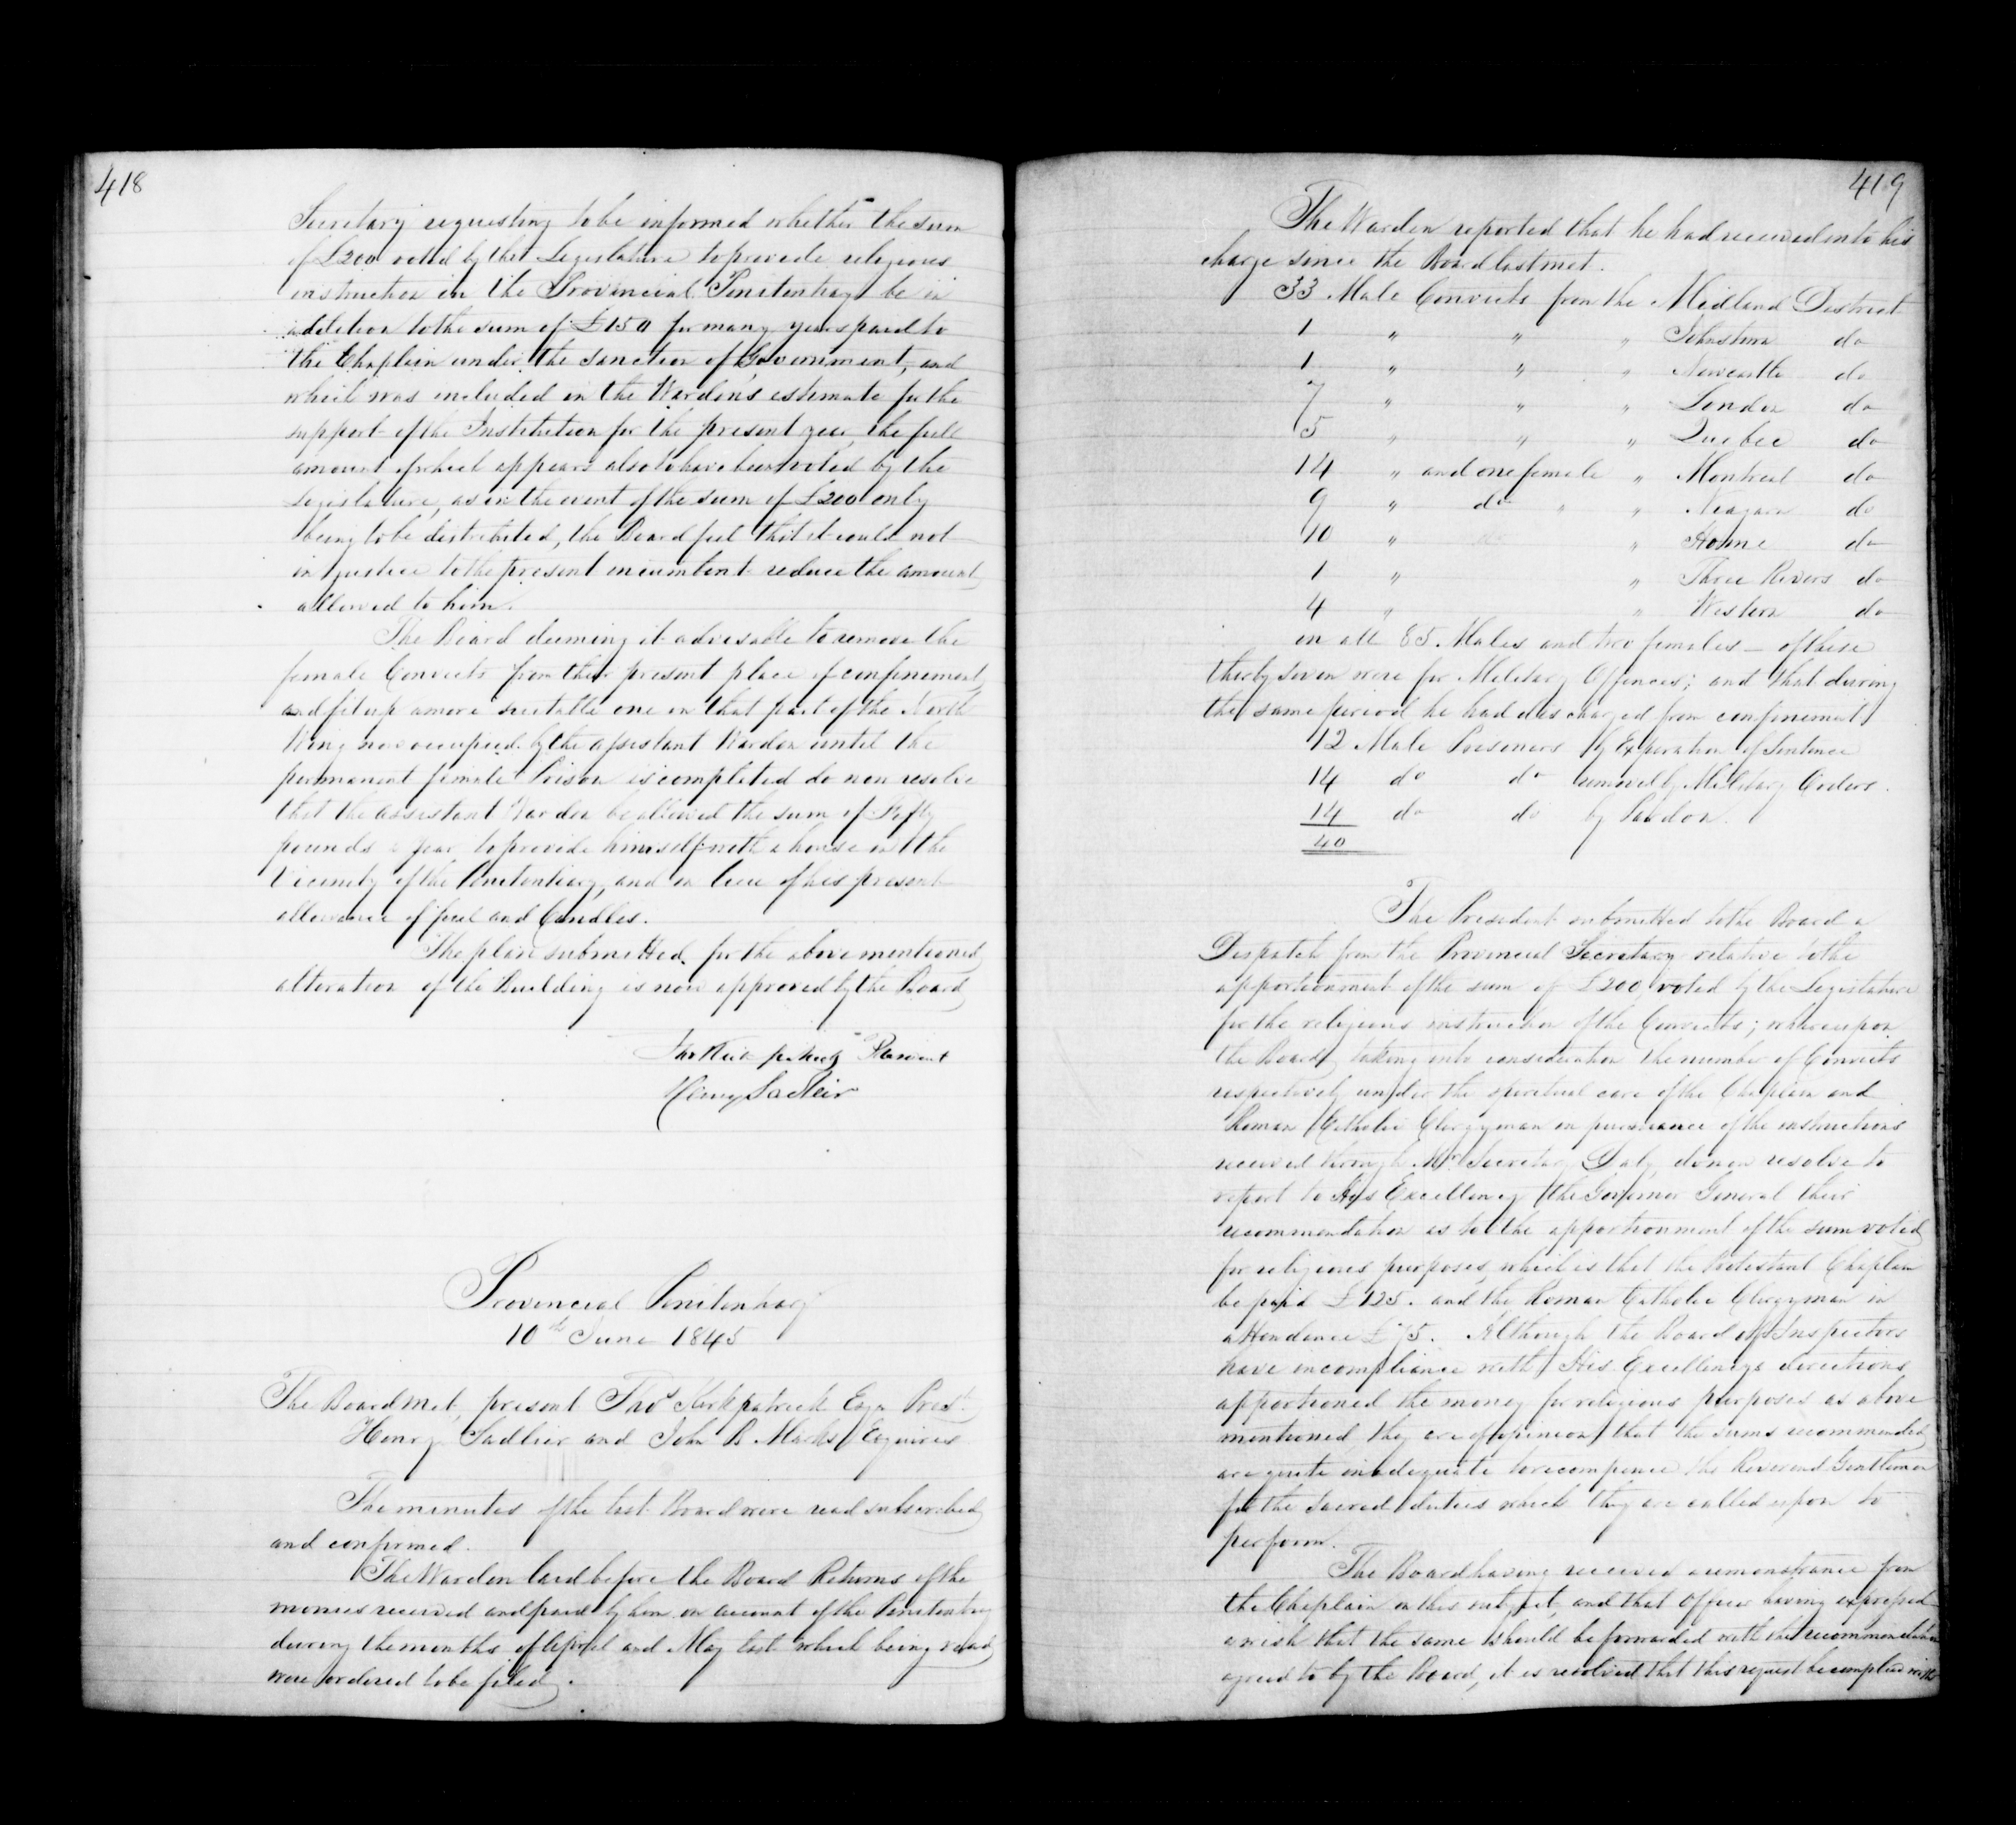 418
Secretary requesting to be informed whether the sum
of £200 voted by the Legislature to provide religious
instruction in the Provincial Penitentiary be in
addition to the sum of £150 for many years paid to
the Chaplain under the sanction of Government, and
which was included in the Warden's estimate for the
support of the Institution for the present year, the full
amount of which appears also to have been voted by the
Legislature, as in the event of the sum of £200 only
being to be distributed, the Board feel that it could not
in justice to the present incumbent reduce the amount
allowed to him.
The Board deeming it advisable to remove the
female Convicts from their present place of confinement
and fit up a more suitable one in that part of the North
Wing now occupied by the assistant Warden until the
permanent female Prison is completed do now resolve
that the assistant Warden be allowed the sum of Fifty
pounds a year to provide himself with a house in the
Vicinity of the Penitentiary, and in lieu of his present
allowance of fuel and Candles.
The plan submitted for the above mentioned
alteration of the Building is now approved by the Board
Thos Kirkpatrick President
Henry Sadleir
Provincial Penitentiary
10th June 1845
The Board met, present Thos Kirkpatrick Esqr Prest
Henry Sadlier and John B Marks Esquires
The minutes of the last Board were read subscribed
and confirmed.
The Warden laid before the Board Returns of the
monies received and paid by him on account of the Penitentiary
during the months of April and May last which being read
were ordered to be filed.
419
The Warden reported that he had received into his
charge since the Board last met.
33 Male Convicts from the Midland District
1 " " " Johnstown do
1 " " " Newcastle do
7 " " " London do
5 " " " Quebec do
14 " and one female " Montreal do
9 " do " " Niagara do
10 " " Home do
1 " " Three Rivers do
4 " " Western do
in all 85 Males and two females – of these
thirty seven were for Military Offences; and that during
the same period he had discharged from confinement
12 Male Prisoners by Expiration of Sentence
14 do do removed by Military Orders.
14 do do by Pardon.
40
The President submitted to the Board a
Despatch from the Provincial Secretary relative to the
apportionment of the sum of £200 voted by the Legislature
for the religious instruction of the Convicts; whereupon
the Board taking into consideration the number of Convicts
respectively under the spiritual care of the Chaplain and
Roman Catholic Clergyman in pursuance of the instructions
received through Mr Secretary Daly, do now resolve to
report to His Excellency the Governor General their
recommendation as to the apportionment of the sum voted
for religious purposes, which is that the Protestant Chaplain
be paid £125. and the Roman Catholic Clergyman in
attendance £75. Although the Board of Inspectors
have in compliance with His Excellencys directions
apportioned the money for religious purposes as above
mentioned they are of opinion that the sums recommended
are quite inadequate to recompence the Reverend Gentlemen
for the sacred duties which they are called upon to
perform.
The Board having received a remonstrance from
the Chaplain on this subject, and that Officer having expressed
a wish that the same should be forwarded with the recommendation
agreed to by the Board, it is resolved that this request be complied with